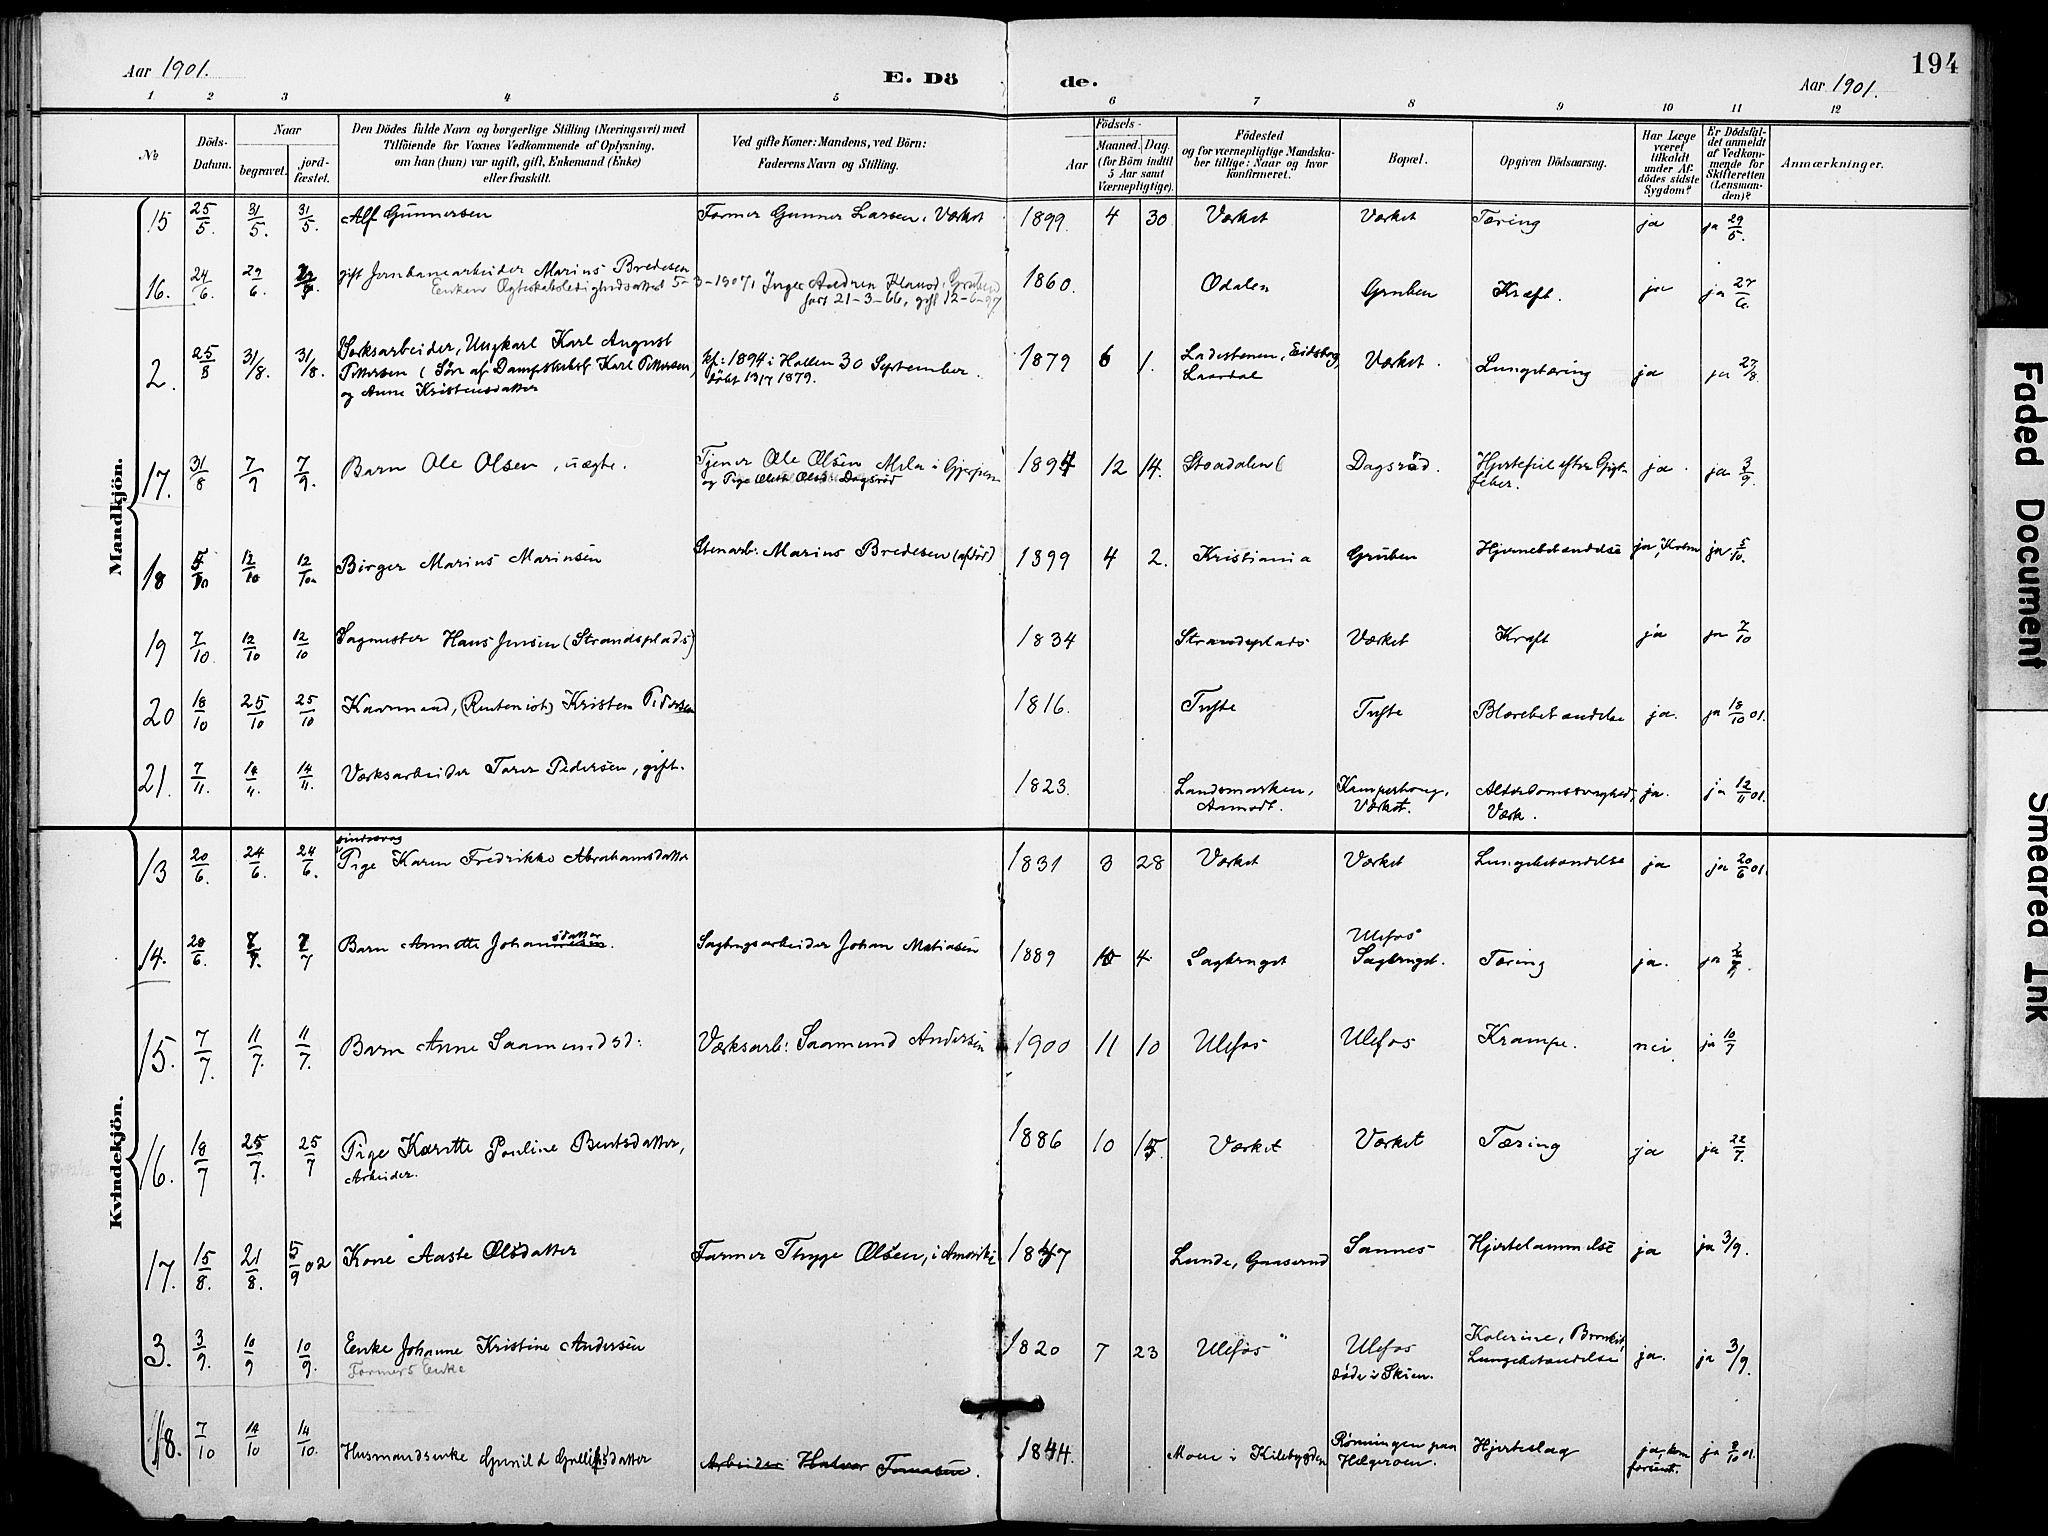 Aar 1901.
E. Dö
de.
Aar 1901.
194
1 2 3 4 5 6 7 8 9 10 11 12
№
Döds-
Datum.
Naar
begravet.
jord-
fæstet.
Den Dödes fulde Navn og borgerlige Stilling (Næringsvei) med
Tilföiende for Voxnes Vedkommende af Oplysning,
om han (hun) var ugift, gift, Enkemand (Enke)
eller fraskilt.
Ved gifte Koner: Mandens, ved Börn:
Faderens Navn og Stilling.
Födsels-
Aar
Maaned. Dag.
(for Börn indtil
5 Aar samt
Værnepligtige).
Födested
og for værnepligtige Mandska-
ber tillige: Naar og hvor
konfirmeret.
Bopæl.
Opgiven Dödsaarsag.
Har Læge
været
tilkaldt
under Af-
dödes sidste
Sygdom?
Er Dödsfal-
det anmeldt
af Vedkom-
mende for
Skifteretten
(Lensman-
den)?
Anmærkninger.
Mandkjön.
15 25/5. 31/5. 31/5. Alf Gunnersen Former Gunner Larsen, Værket 1899. 4 30 Værket Værket Tæring ja ja 29/5.
16. 24/6. 29/6. gift Jernbanearbeider Marius Bredesen 1860. Odalen Gruben Kræft. ja ja 27/6.
Enken Ægteskabsledighedsattest 5-3-1907, Inger
født 21-3-66, gift 12-6-97
2. 25/8 31/8. 31/8. Værksarbeider, Ungkarl Karl August kf: 1894 i Hollen 30 September. 1879 6 1. Ladestenen, Eidsborg, Værket. Lungetæring ja ja 27/8.
Pettersen (Søn af Dampskibsf Karl Pettersen, døbt 13/7 1879. Laardal
og Anne Kristensdatter
17. 31/8 7/9 7/9. Barn Ole Olsen, uægte. Tjener Ole Olsen Mela i Gjerpen 1894 12 14. Stoadalen Dagsrød. Hjertefeil efter Gigt- ja. ja 3/9.
og Pige Dagsrød feber.
18 5/10 12/10 12/10 Birger Marius Marinsen Stenarb: Marius Bredesen (afdød) 1899 4 2. Kristiania Gruben Hjernebetændelse ja, ja 5/10.
19 7/10. 12/10 12/10 Sagmester Hans Jensen (Strandsplads) 1834 Strandsplads Værket Kræft ja ja 7/10
20 18/10 25/10 25/10 Kaarmand, (Rentenist) Kristen Pedersen 1816. Tufte Tufte Blærebetændelse ja. ja 18/10 01.
21. 7/11. 14/11. 14/11. Værksarbeider Tarer Pedersen, gift. 1823. Landsmarken, Kamperhoug, Alderdomssvaghed, ja. ja 12/11 01.
Værket. Værk.
Kvindekjön.
sindssvag
13 20/6. 24/6. 24/6. Pige Karen Fredrikke Abrahamsdatter 1831 3 28 Værket Værket Lungebetændelse ja ja 20/6 01.
14. 20/6. 7/7. 7/7 Barn Annette Johannesen. sdatter Sagbrugsarbeider Johan Matiasen 1889 10 4. Sagbruget Ulefos Sagbruget. Tæring ja. ja
15. 7/7. 11/7. 11/7. Barn Anne Saamundsd: Værksarb: Saamund Andersen 1900 11 10 Ulefos Ulefos Krampe. nei. ja 10/7
16. 18/7 25/7. 25/7 Pige Karette Pauline Bentsdatter, 1886 10 15 Værket Værket Tæring ja ja 22/7.
Arbeider.
17. 15/8. 21/8. 5/9 02 Kone Aaste Olsdatter Farmer Thyge Olsen, i Amerika 1847 Lunde, Gaaserud Sannes Hjertelammelse ja ja 3/9.
3. 3/9. 10/9 10/9. Enke Johanne Kristine Andersen 1820 7 23 Ulefos Ulefos Kolerine, Bronkit, ja. ja 3/9.
Formers Enke døde i Skien. Lungebetændelse
18. 7/10 14/10 14/10. Husmandsenke Gunild Gulleiksdatter Arbeider Halvor Tomasen. 1844. Moen i Kilebygden Rønningen paa Hjerteslag ja, kom ja 8/10 01.
Helgeroen. forsent.
Faded Document
Smeared Ink